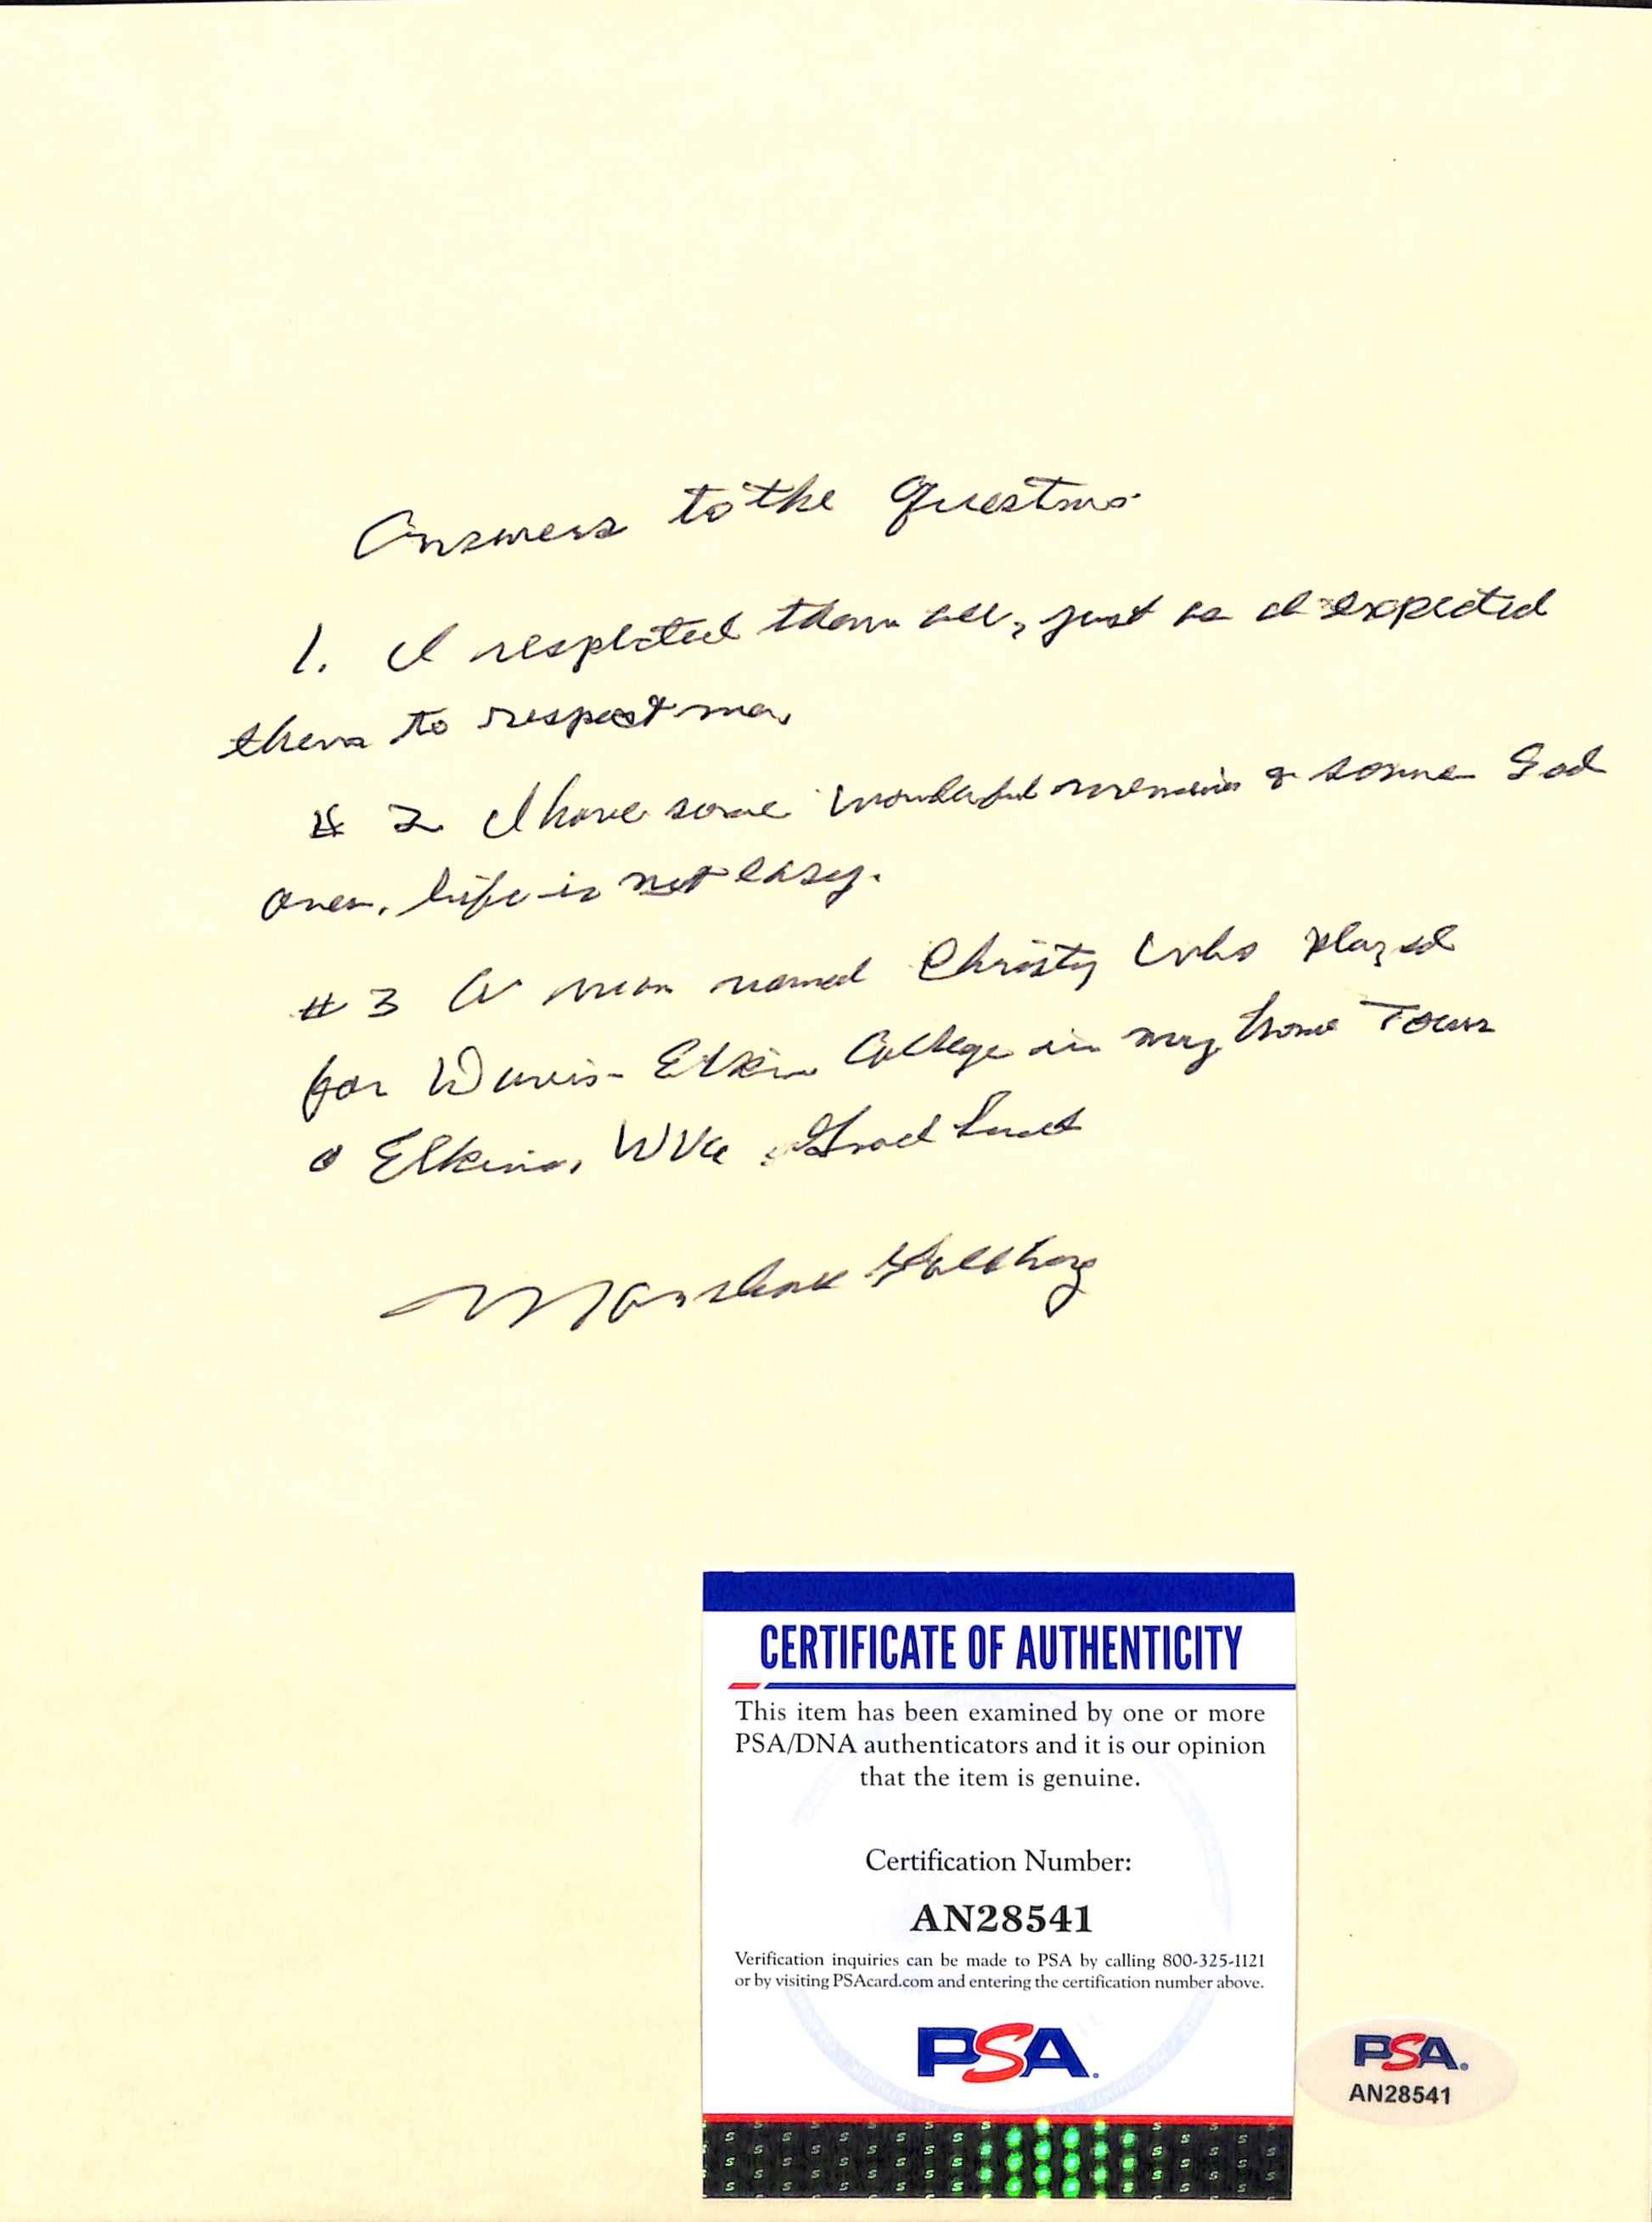 Answers to the Questions
1. I respected them all, just as I expected
them to respect me.
# 2 I have some wonderful memories & some Sad
ones. life is not easy.
#3 A man named Christy who played
for Davis-Elkins College in my home Town
o Elkins, WVa. Good Luck
Marshall Goldberg
CERTIFICATE OF AUTHENTICITY
This item has been examined by one or more
PSA/DNA authenticators and it is our opinion
that the item is genuine.
Certification Number:
AN28541
Verification inquiries can be made to PSA by calling 800-325-1121
or by visiting PSAcard.com and entering the certification number above.
PSA.
PSA.
AN28541